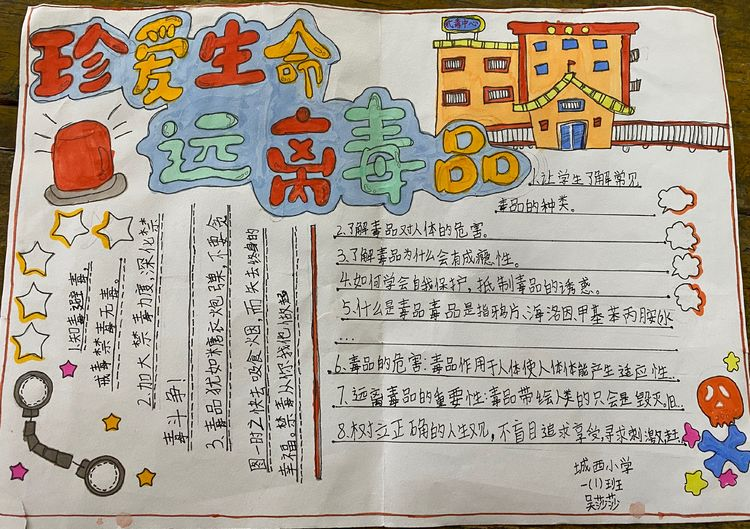 珍爱生命
远离毒品
戒毒中心
1.知毒避毒,
戒毒禁毒无毒。
2.加大禁毒力度,深化禁
毒斗争!
3.毒品犹如糖衣炮弹,不要贪
图一时之快去吸食火因,而失去终身的
幸福。禁毒从你我他做起
1.让学生了解常见
毒品的种类。
2.了解毒品对人体的危害。
3.了解毒品为什么会有成瘾性。
4.如何学会自我保护,抵制毒品的诱惑。
5.什么是毒品毒品是指鸦片、海洛因.甲基苯丙胺冰
...
6.毒品的危害:毒品作用于人体使人体体能产生适应性
7.远离毒品的重要性:毒品带给人类的只会是毁灭旧.
8.树立正确的人生观,不盲目追求享受,寻求刺激赶.
城西小学
一(1)班
吴莎莎